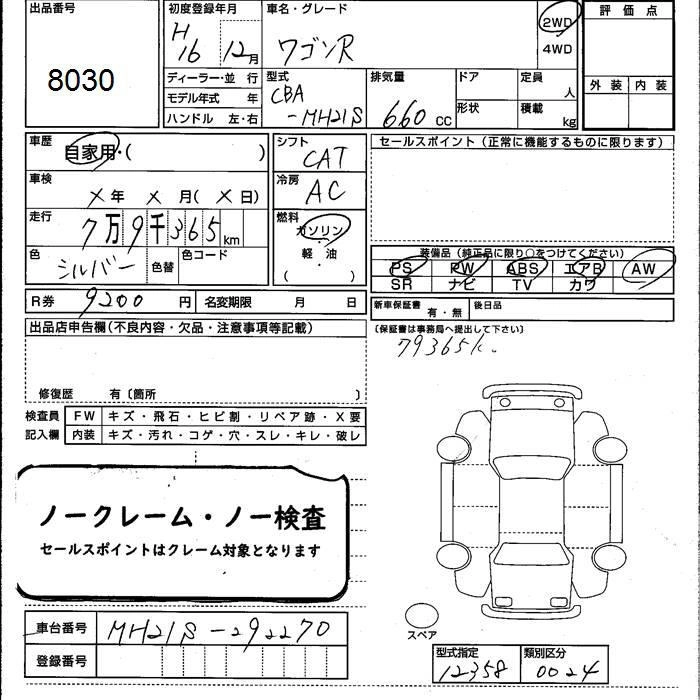 出品番号 8030
初度登録年月 H16 12月
車名・グレード ワゴンR
2WD
4WD
評価点
外装 内装
ディーラー・並 行
モデル年式 年
ハンドル 左・右
型式 CBA-MH21S
排気量 660 CC
ドア
形状
定員 人
積載 kg
車歴 自家用・( )
車検 X年 X月(X日)
走行 7万9千365km
色 シルバー 色替 色コード
シフト CAT
冷房 AC
燃料 ガソリン
軽・油
( )
セールスポイント(正常に機能するものに限ります)
装備品(純正品に限り○をつけてください)
PS PW ABS エアB AW
SR ナビ TV カワ
R券 9200円 名変期限 月 日
新車保証書 有・無 後日品
(保証書は事務局へ提出して下さい)
79365k.
出品店申告欄(不良内容・欠品・注意事項等記載)
修復歴 有〔箇所 〕
検査員 FW キズ・飛石・ヒビ割・リペア跡・X要
記入欄 内装 キズ・汚れ・コゲ・穴・スレ・キレ・破レ
ノークレーム・ノー検査
セールスポイントはクレーム対象となります
車台番号 MH21S-292270
登録番号
スペア
型式指定 類別区分
12358 0024